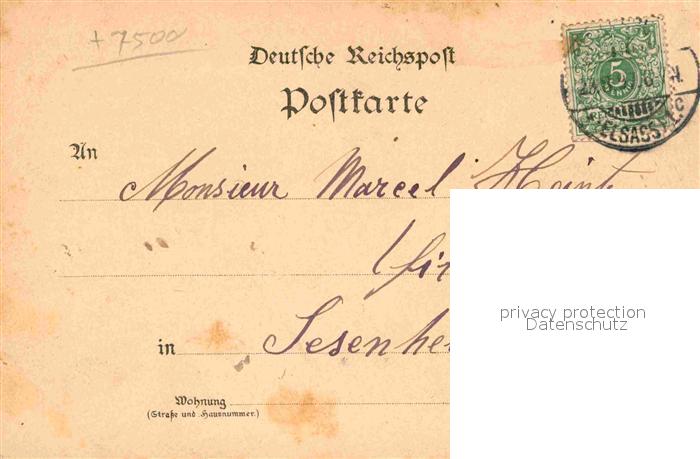 + 7500
Deutsche Reichspost
Postkarte
5
ELSASS
An
Monsieur Marcel
in Sesenhe
privacy protection
Datenschutz
Wohnung
(Straße und Hausnummer.)